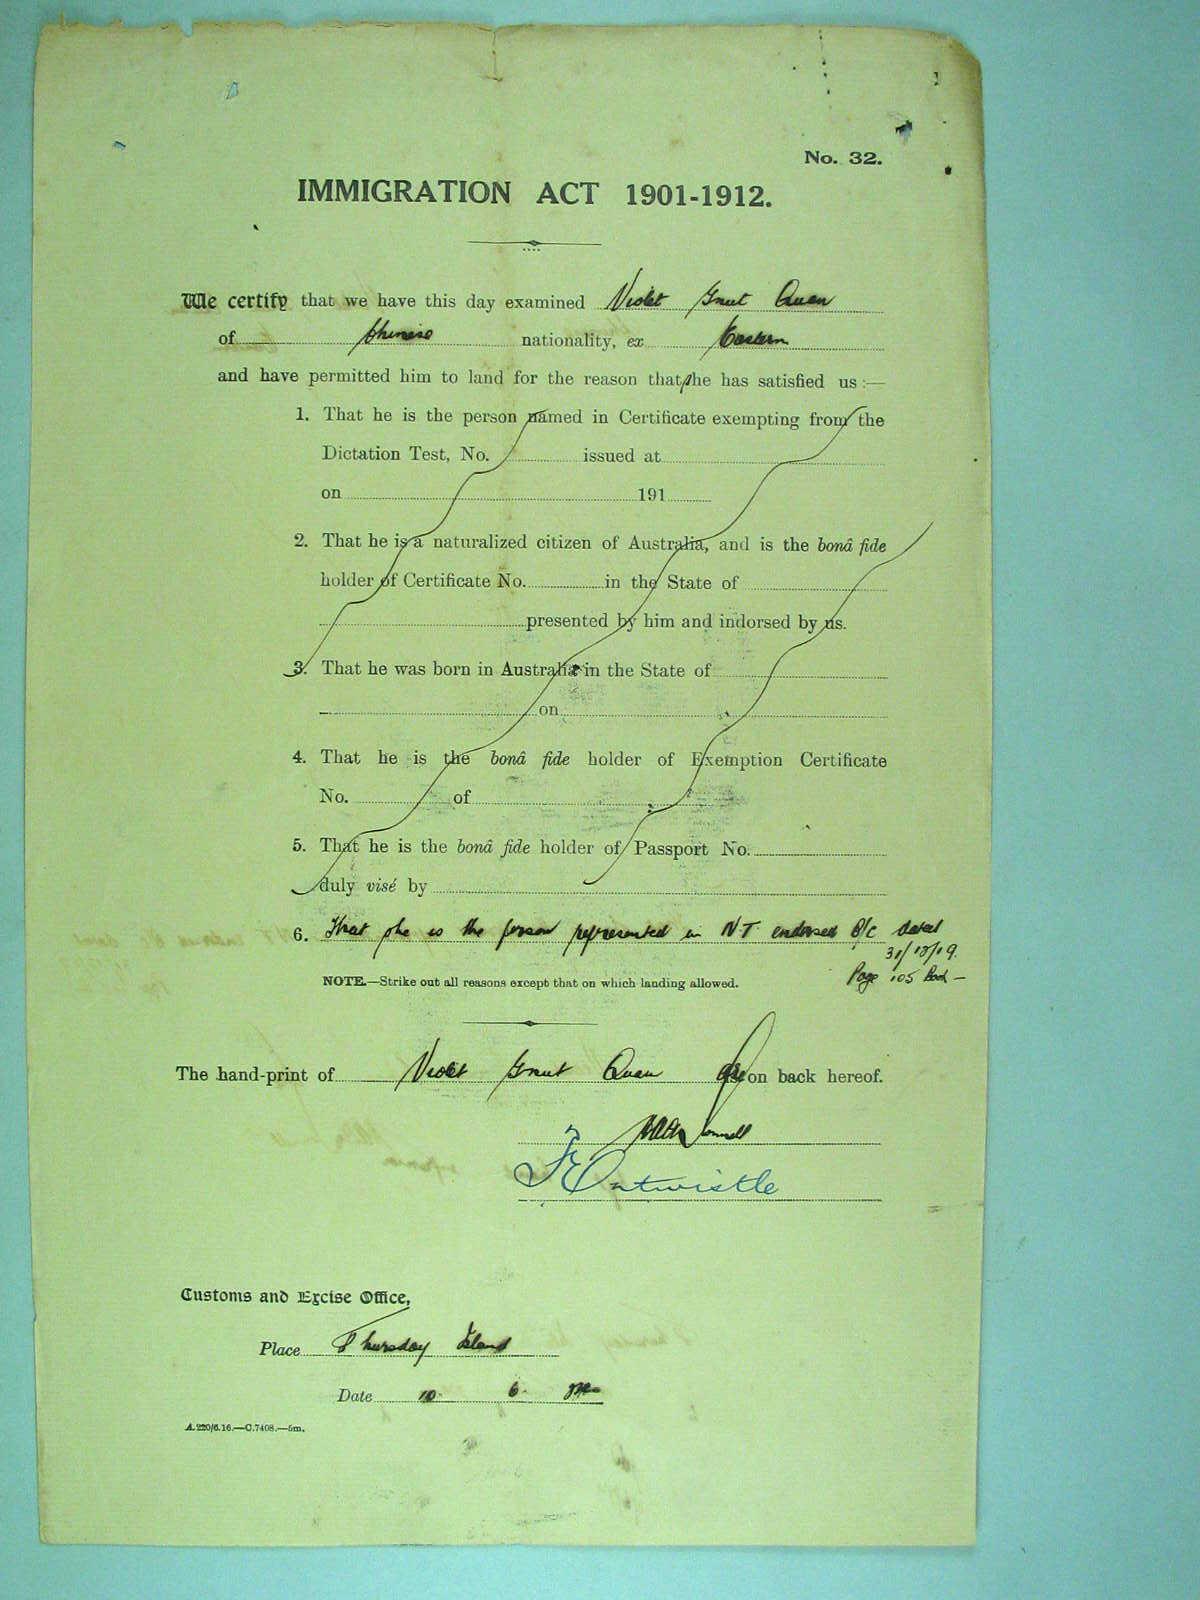 No. 32.
IMMIGRATION ACT 1901-1912.
We certify that we have this day examined Violet Gnut Quan
of Chinese nationality, ex Eastern
and have permitted him to land for the reason that she has satisfied us :—
1. That he is the person named in Certificate exempting from the
Dictation Test, No. issued at
on 191
2. That he is a naturalized citizen of Australia, and is the bonâ fide
holder of Certificate No. in the State of
presented by him and indorsed by us.
3. That he was born in Australia in the State of
on
4. That he is the bonâ fide holder of Exemption Certificate
No. of
5. That he is the bonâ fide holder of Passport No.
duly visé by
6. That she is the person represented in NT endorsed B/C dated
31/12/19.
Page 105 Book —
NOTE.—Strike out all reasons except that on which landing allowed.
The hand-print of Violet Gnut Quan on back hereof.
F Entwistle
Customs and Excise Office,
Place Thursday Island
Date 10 6
A.220/6.16.—C.7408.—5m.